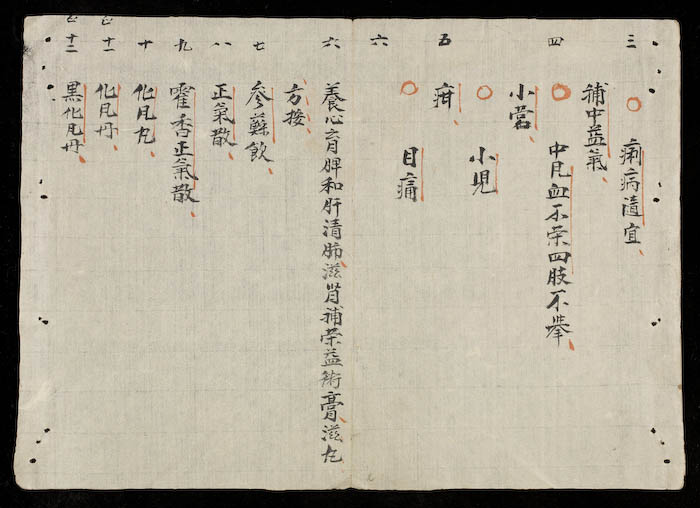 三 痢病遺宜
補中益氣
四 中凡血不荣四肢不擧
小営
小児
五 疳
六 目痛
六 養心育脾和肝清肺滋肾補荣益術膏滋丸
方按
七 參蘇飲
八 正氣散
九 霍香正氣散
十 化凡丸
十一 化凡丹
十二 黒化凡丹